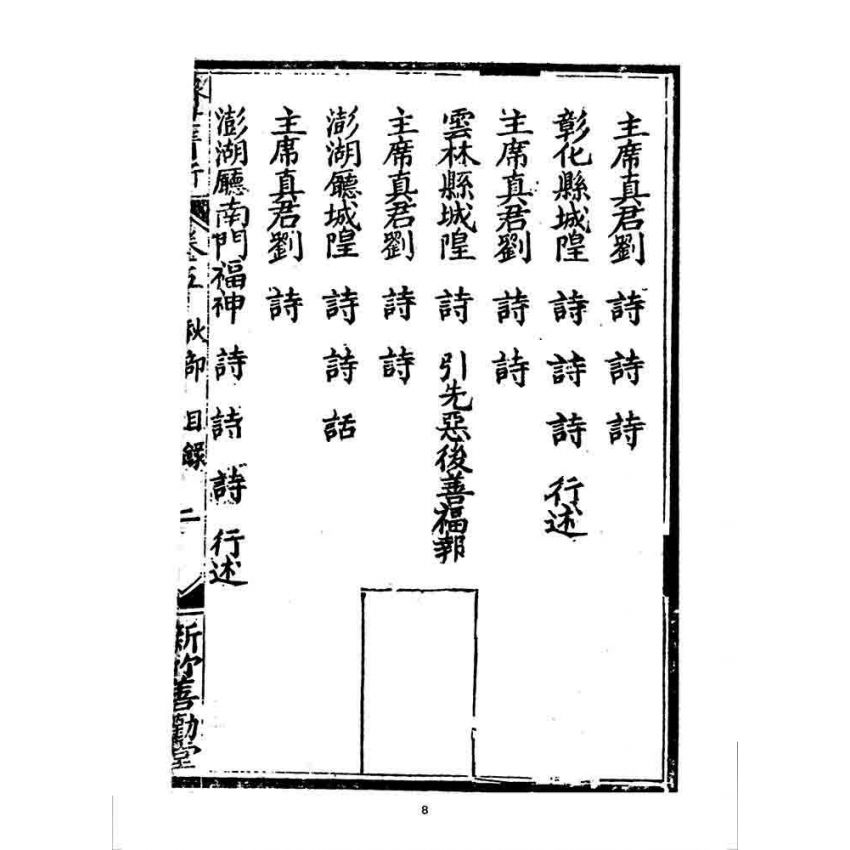 主席真君劉 詩 詩 詩
彰化縣城隍 詩 詩 詩 行述
主席真君劉 詩 詩
雲林縣城隍 詩 引先惡後善福郭
主席真君劉 詩 詩
澎湖廳城隍 詩 詩 話
主席真君劉 詩
澎湖廳南門福神 詩 詩 詩 行述
卷五 秋部 目錄 二
善勸堂
8